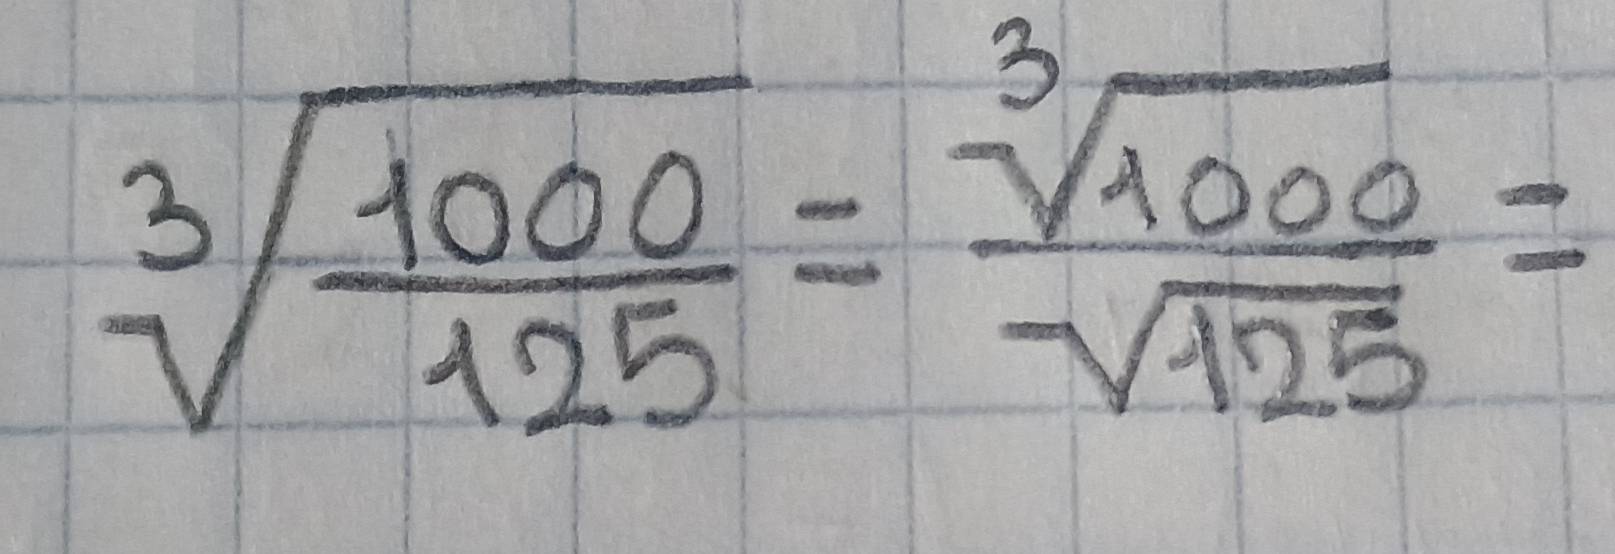 $\sqrt[3]{\frac{1000}{125}} = \frac{\sqrt[3]{1000}}{\sqrt{125}} =$